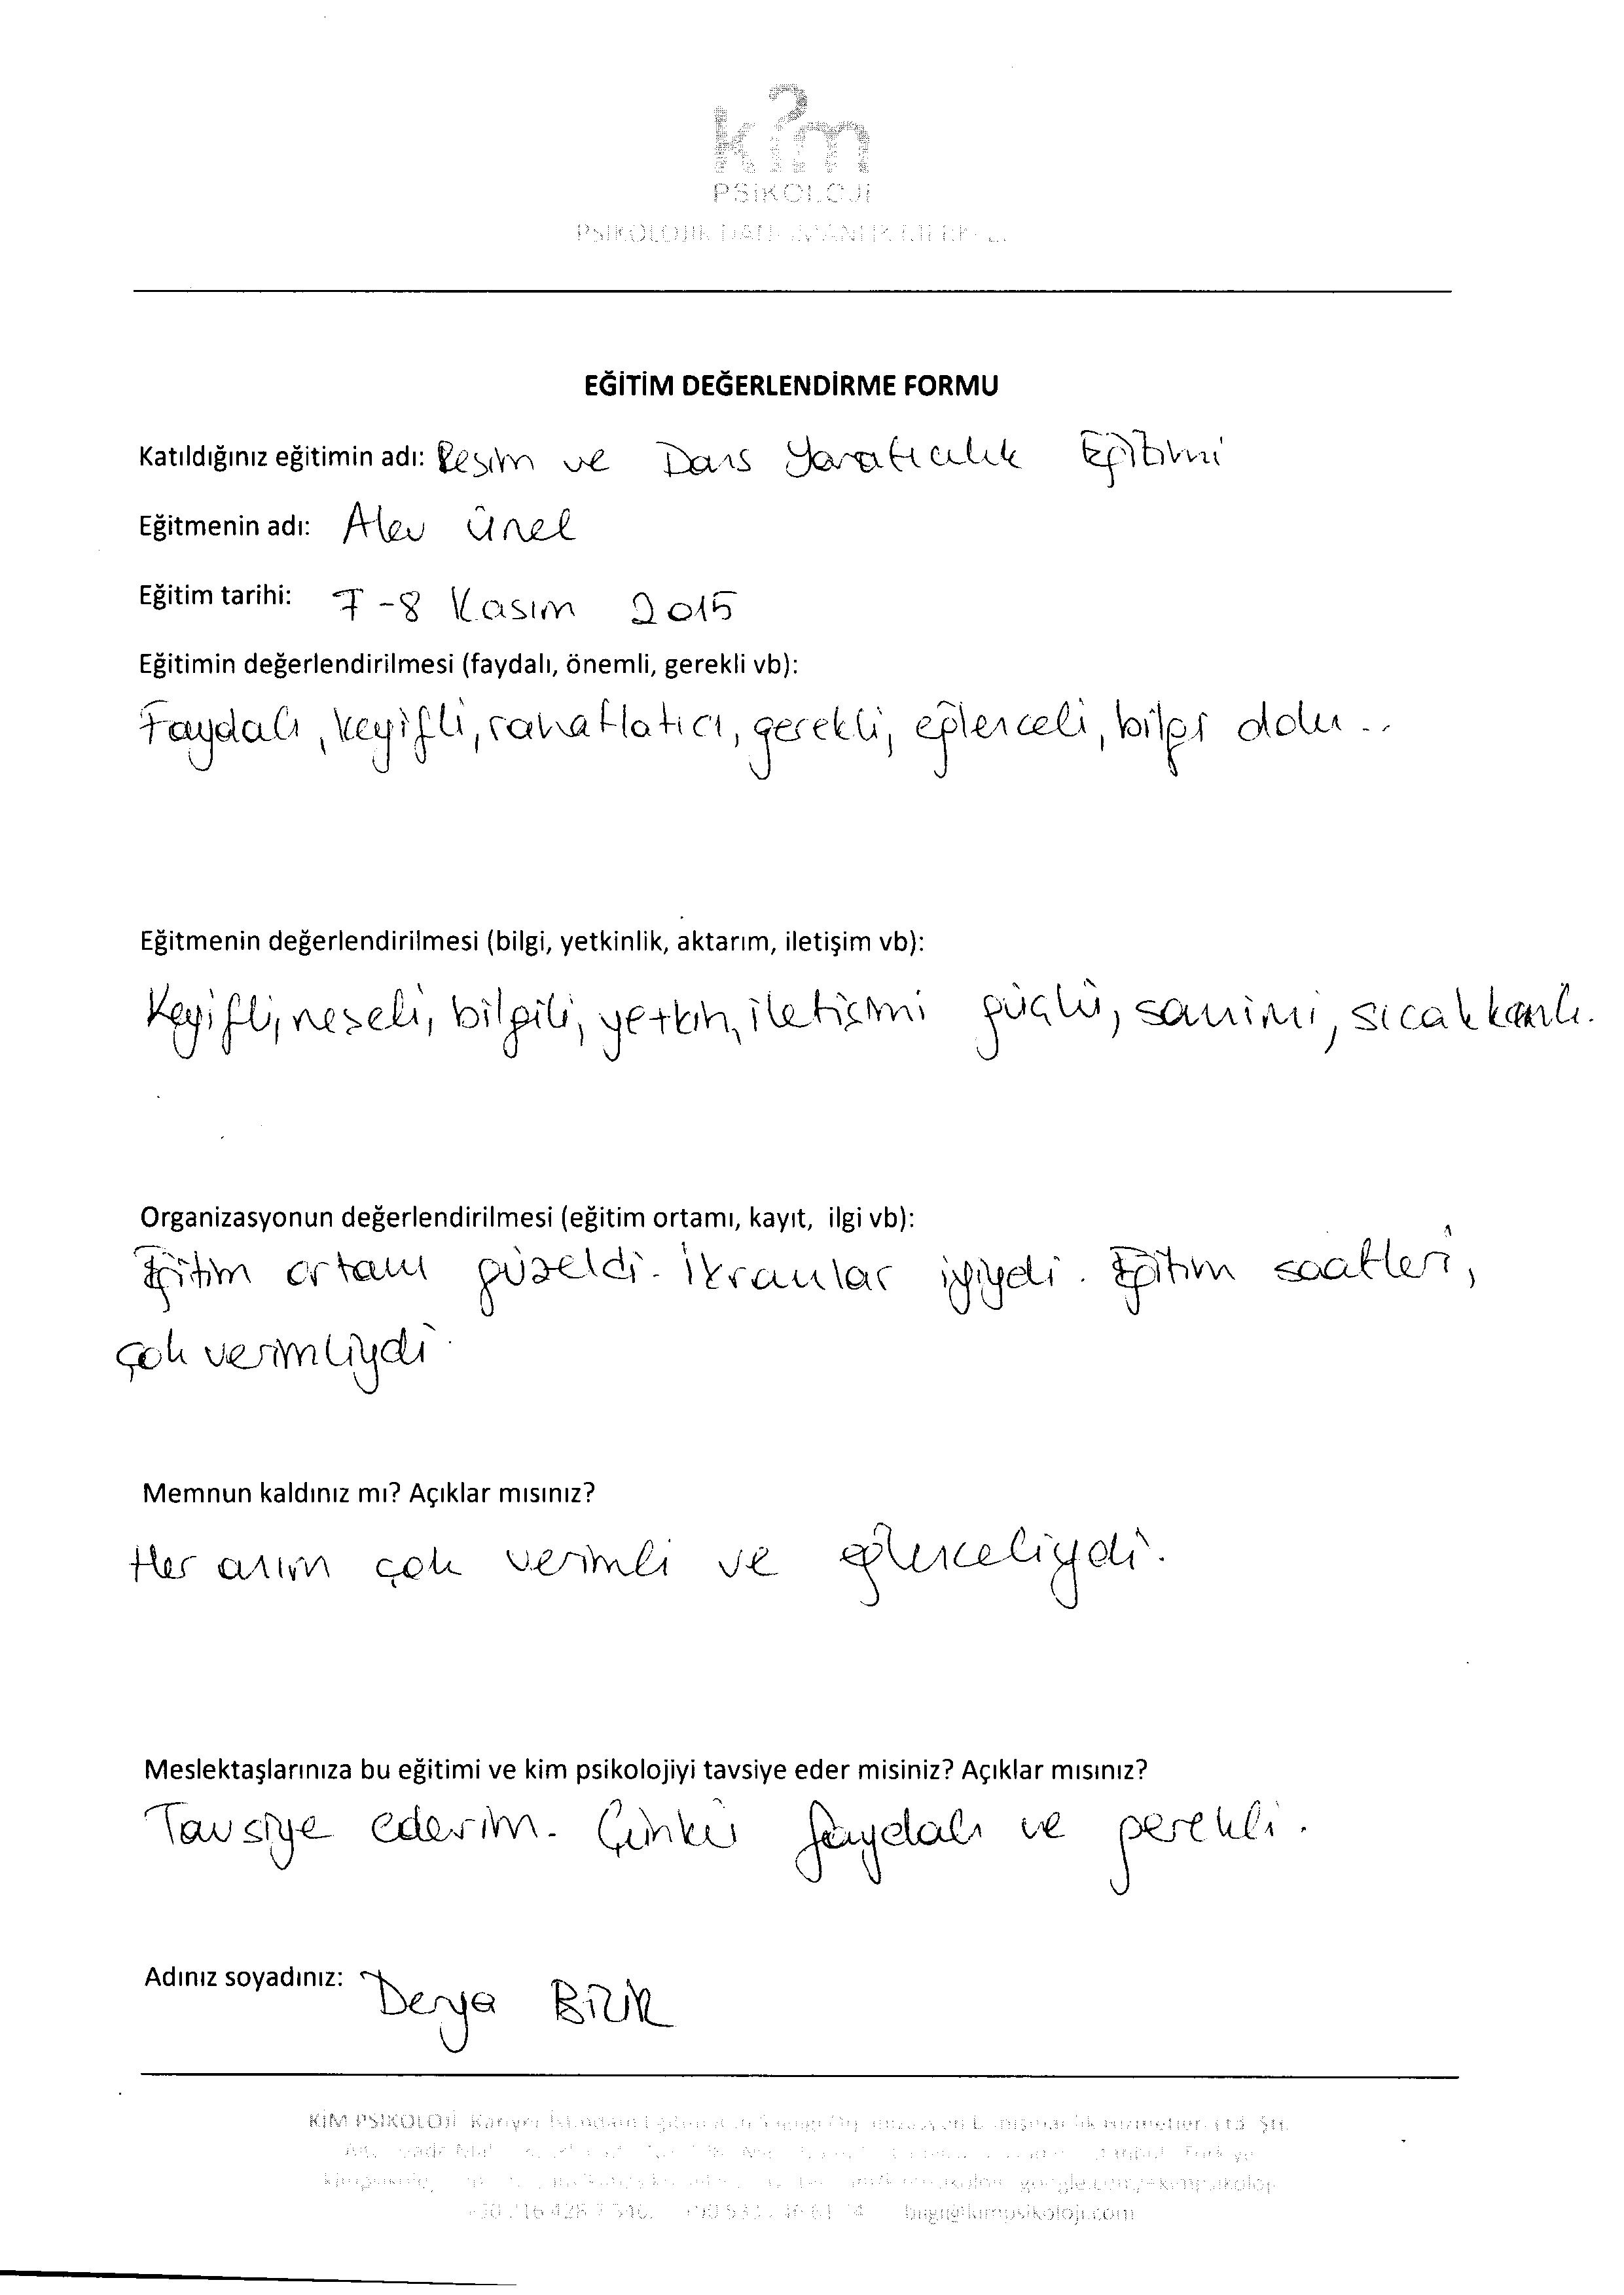 k?m
PSİKOLOJİ
EĞİTİM DEĞERLENDİRME FORMU
Katıldığınız eğitimin adı: Resim ve Dans Yaratıcılık Eğitimi
Eğitmenin adı: Alev Ünel
Eğitim tarihi: 7-8 Kasım 2015
Eğitimin değerlendirilmesi (faydalı, önemli, gerekli vb):
Faydalı, keyifli, rahatlatıcı, gerekli, eğlenceli, bilgi dolu..
Eğitmenin değerlendirilmesi (bilgi, yetkinlik, aktarım, iletişim vb):
Keyifli, neşeli, bilgili, yetkin, iletişimi güçlü, samimi, sıcakkanlı.
Organizasyonun değerlendirilmesi (eğitim ortamı, kayıt, ilgi vb):
Eğitim ortamı güzeldi. İkramlar iyiydi. Eğitim saatleri,
çok verimliydi.
Memnun kaldınız mı? Açıklar mısınız?
Her anım çok verimli ve eğlenceliydi.
Meslektaşlarınıza bu eğitimi ve kim psikolojiyi tavsiye eder misiniz? Açıklar mısınız?
Tavsiye ederim. Çünkü faydalı ve gerekli.
Adınız soyadınız: Derya
KİM PSİKOLOJİ Kariyer
bilgi@kimpsikoloji.com